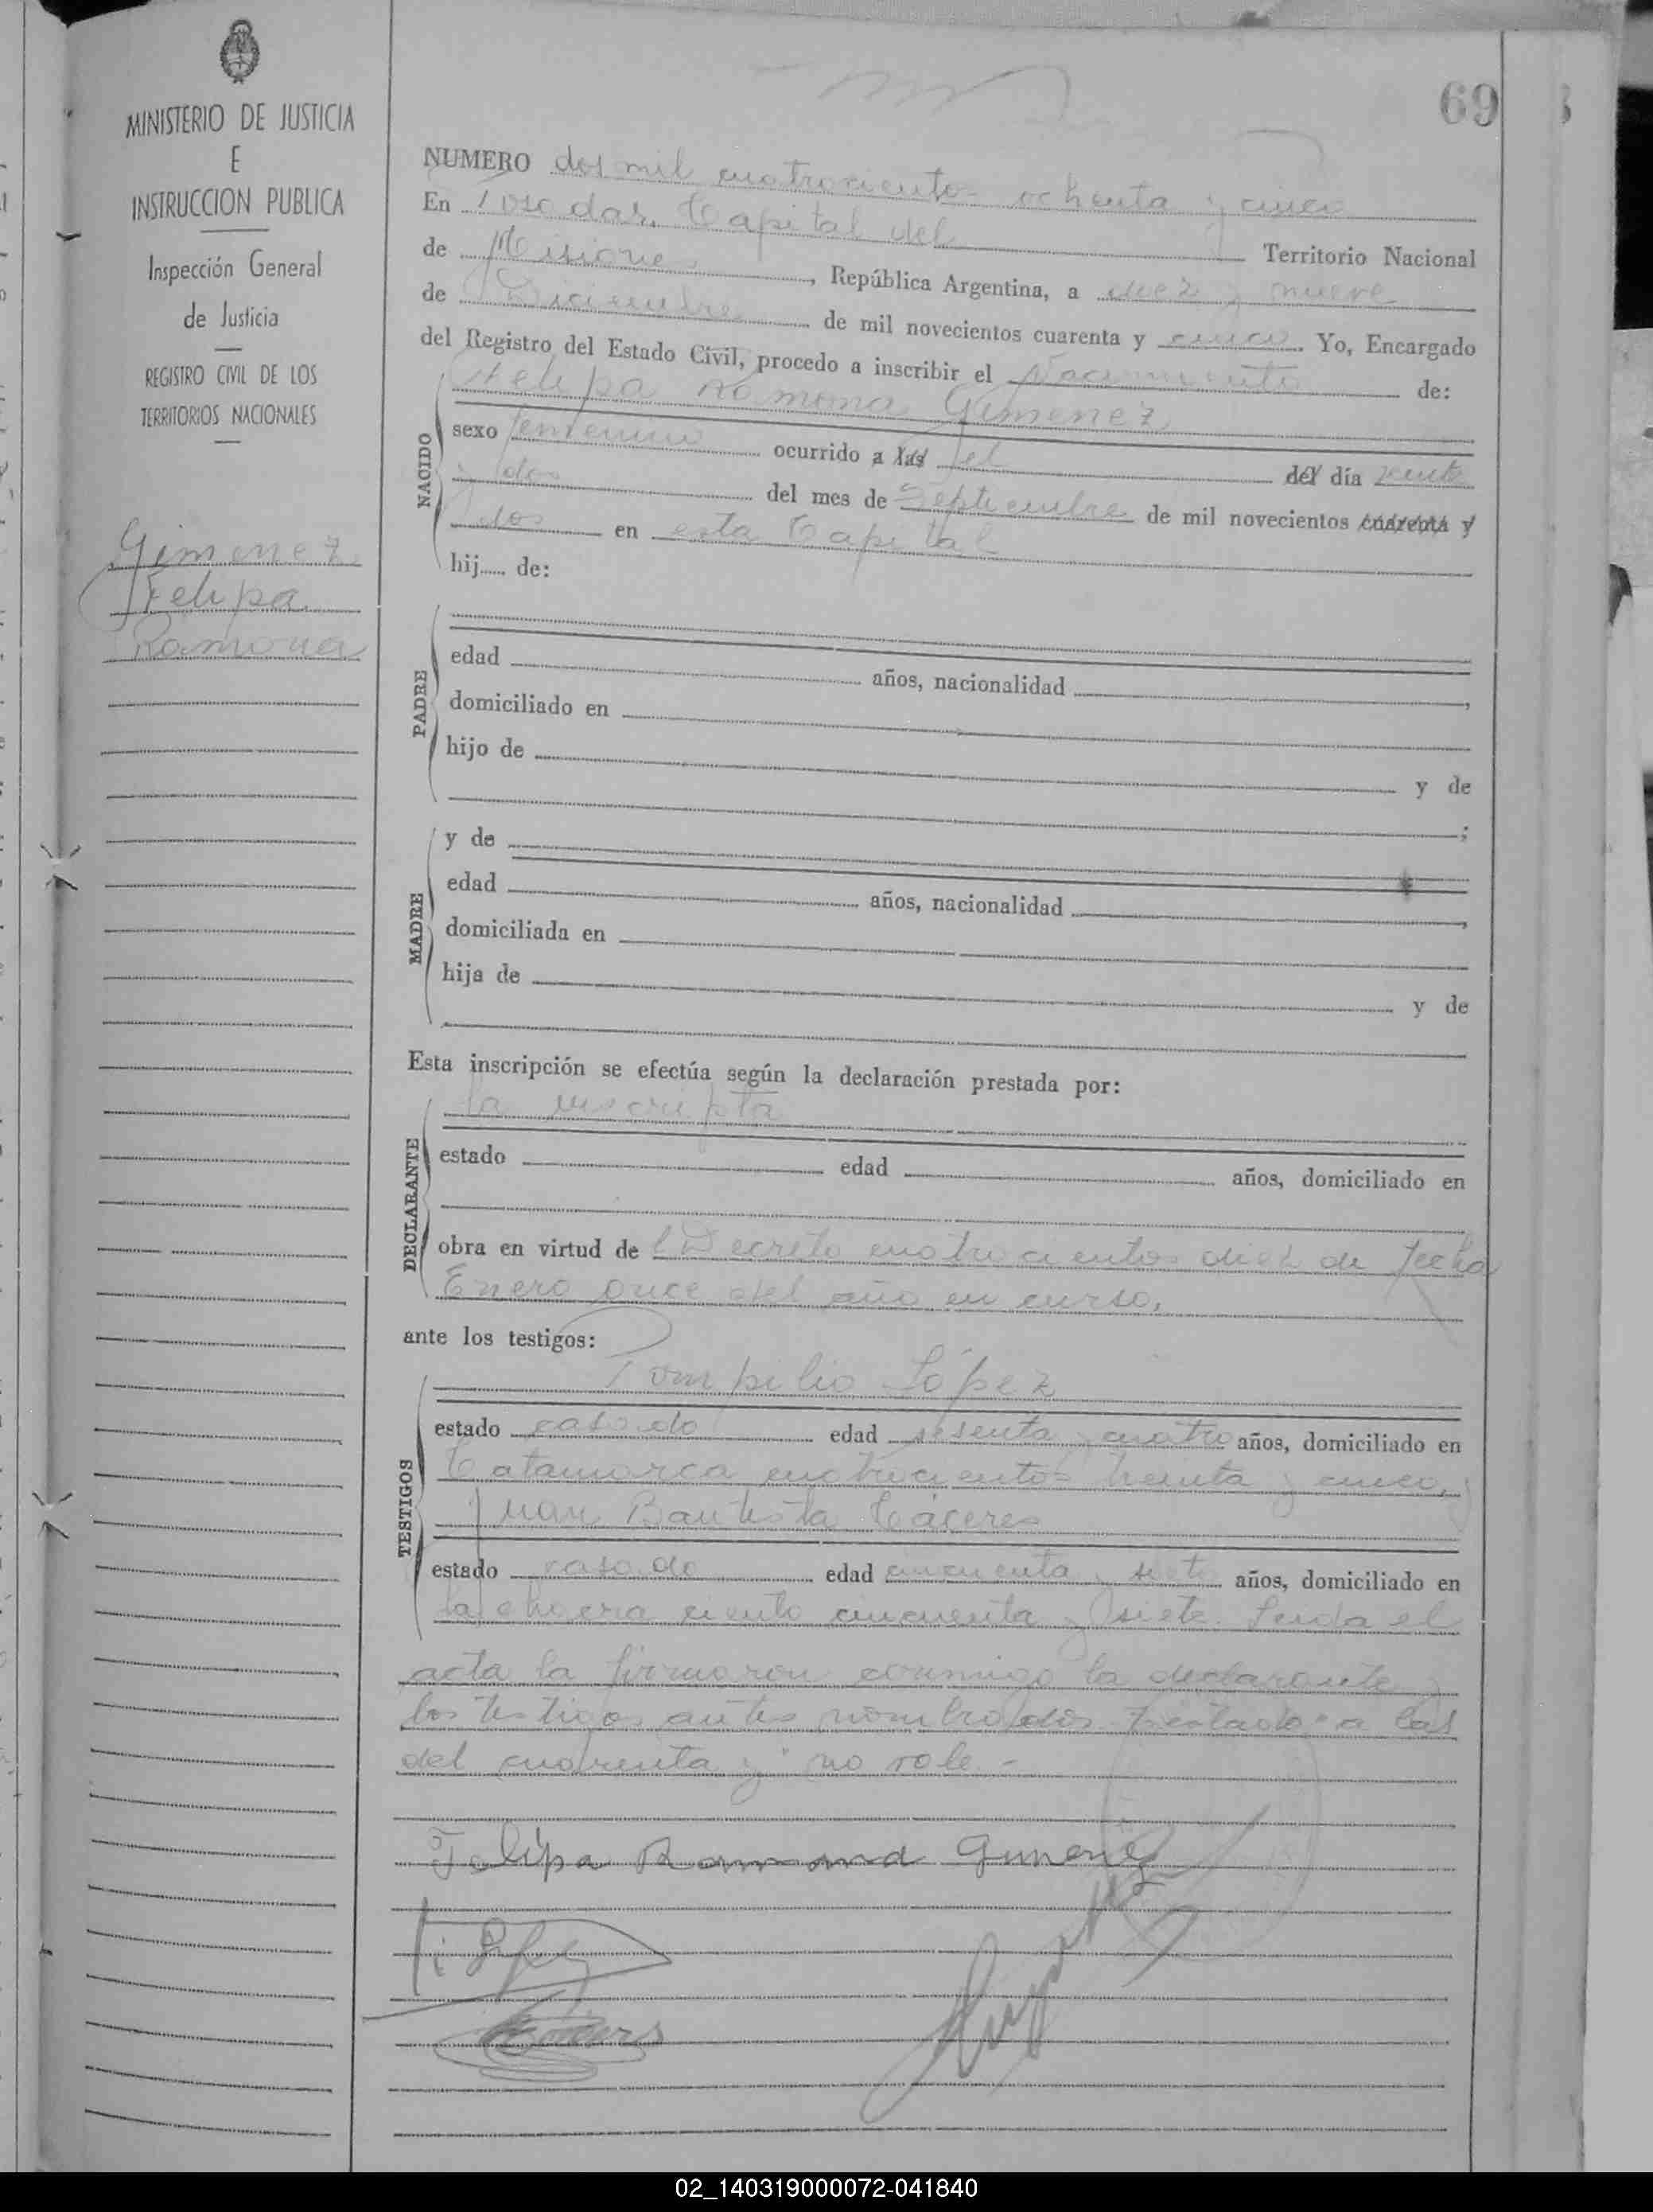 MINISTERIO DE JUSTICIA
E
INSTRUCCION PUBLICA
Inspección General
de Justicia
REGISTRO CIVIL DE LOS
TERRITORIOS NACIONALES
Gimenez
Felipa
Ramona
69
NUMERO dos mil cuatrocientos ochenta y cinco
En Posadas, Capital del Territorio Nacional
de Misiones, República Argentina, a diez y nueve
de Diciembre de mil novecientos cuarenta y cinco. Yo, Encargado
del Registro del Estado Civil, procedo a inscribir el Nacimiento de:
NACIDO
Felipa Ramona Gimenez
sexo femenino ocurrido a las el del día veinte
y dos del mes de Septiembre de mil novecientos cuarenta y
dos en esta Capital
hij..... de:
PADRE
edad años, nacionalidad ,
domiciliado en
hijo de y de
;
MADRE
y de
edad años, nacionalidad ,
domiciliada en
hija de y de
Esta inscripción se efectúa según la declaración prestada por:
DECLARANTE
la inscripta
estado edad años, domiciliado en
obra en virtud de l Decreto cuatrocientos diez de fecha
Enero once del año en curso,
ante los testigos:
TESTIGOS
Pompilio López
estado casado edad sesenta y cuatro años, domiciliado en
Catamarca cuatrocientos treinta y cinco, y
Juan Bautista Cáceres
estado casado edad cincuenta y siete años, domiciliado en
la chacra ciento cincuenta y siete. Leida el
acta la firmaron conmigo la declarante y
los testigos antes nombrados. Testado "a las
del cuarenta y" no vale.-
Felipa Ramona Gimenez
02_140319000072-041840